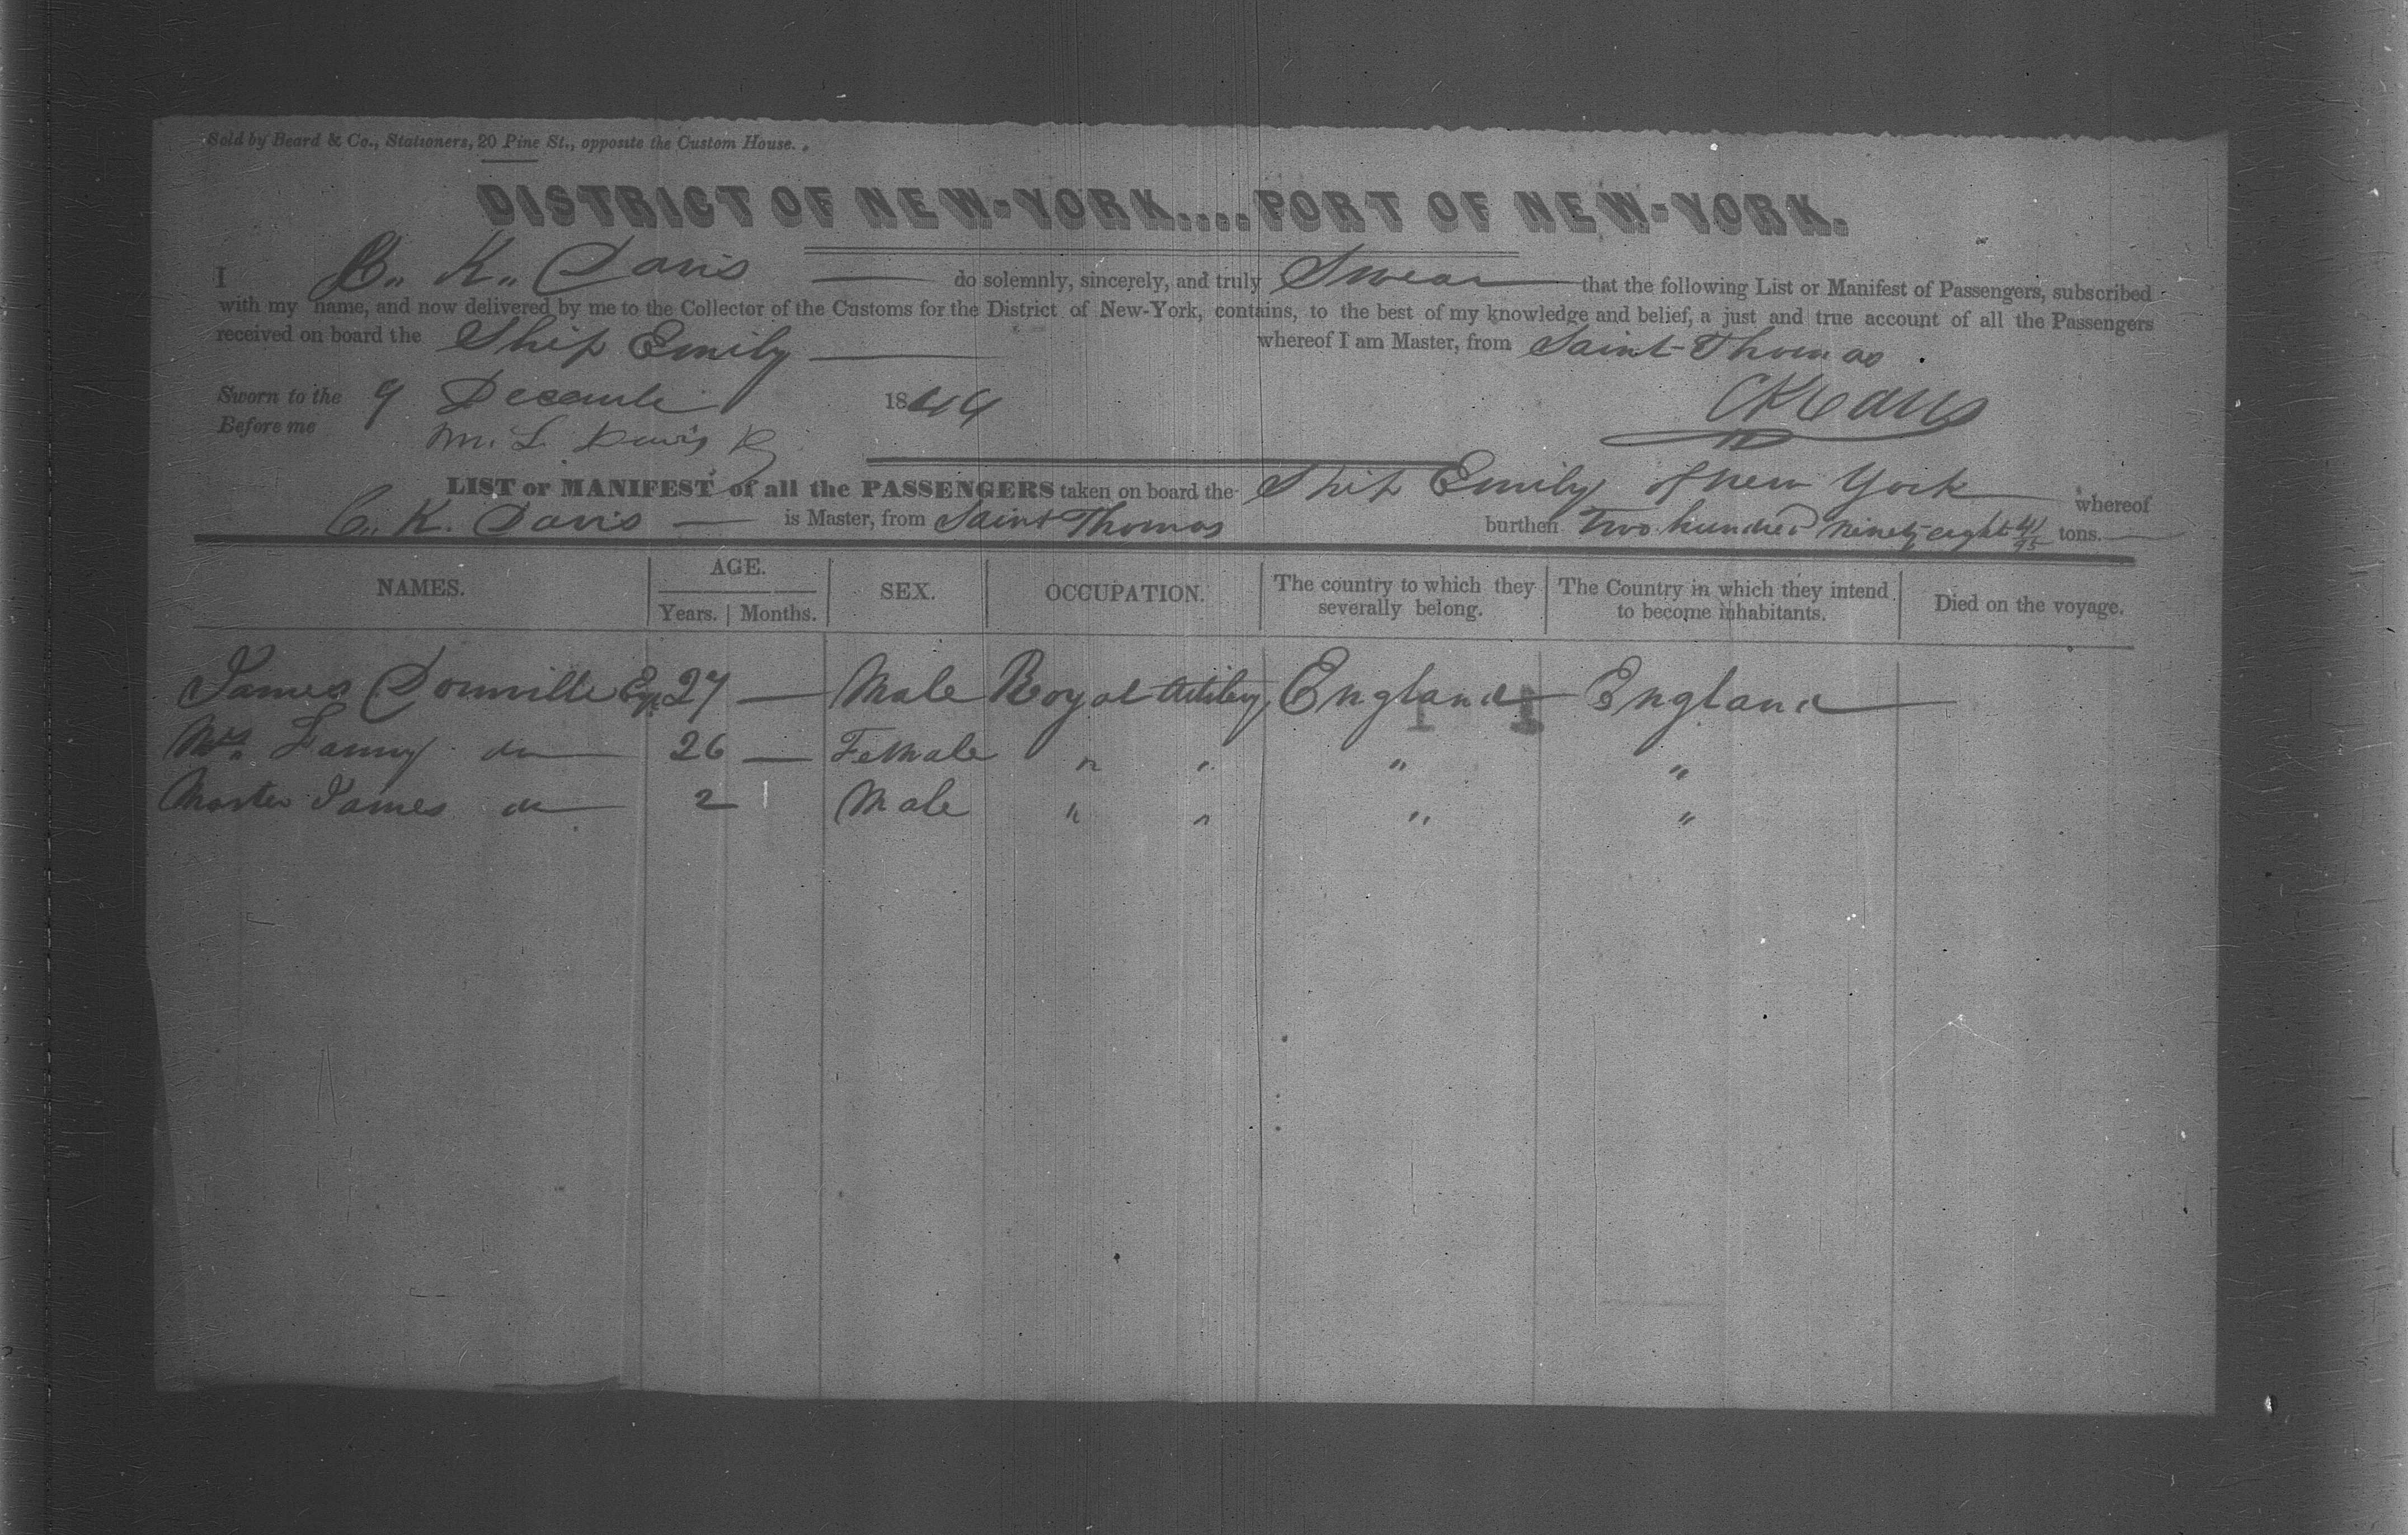 Sold by Beard & Co., Stationers, 20 Pine St., opposite the Custom House.
DISTRICT OF NEW-YORK....PORT OF NEW-YORK.
I C. K. Davis do solemnly, sincerely, and truly Swear that the following List or Manifest of Passengers, subscribed
with my name, and now delivered by me to the Collector of the Customs for the District of New-York, contains, to the best of my knowledge and belief, a just and true account of all the Passengers
received on board the Ship Emily whereof I am Master, from Saint Thomas
Sworn to the 9 Decembe 1844 CK Davis
Before me M. L. Davis
LIST or MANIFEST of all the PASSENGERS taken on board the Ship Emily of New York whereof
C. K. Davis is Master, from Saint Thomas burthen Two hundred ninety eight 41/95 tons.
NAMES. AGE. SEX. OCCUPATION. The country to which they severally belong. The Country in which they intend to become inhabitants. Died on the voyage.
Years. Months.
James Domville Esq. 27 — Male Royal Artillery England England
Mrs. Fanny do 26 — Female " " " "
Master James do 2 Male " " " "